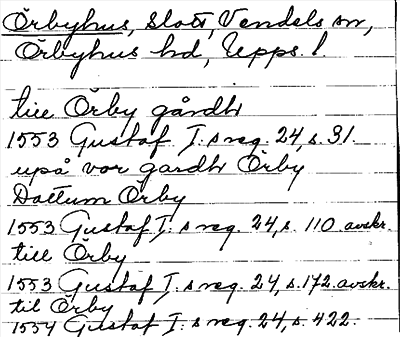 Örbyhus, slott, Vendels sn,
Örbyhus hd, Upps. l.
till Örby gårdh
1553 Gustaf I: s reg. 24, s. 31.
upå vor gardh Örby
Dattum Örby
1553 Gustaf I: s reg. 24, s. 110 avskr.
till Örby
1553 Gustaf I: s reg. 24, s. 172. avskr.
til Örby
1554 Gustaf I: s reg. 24, s. 422.